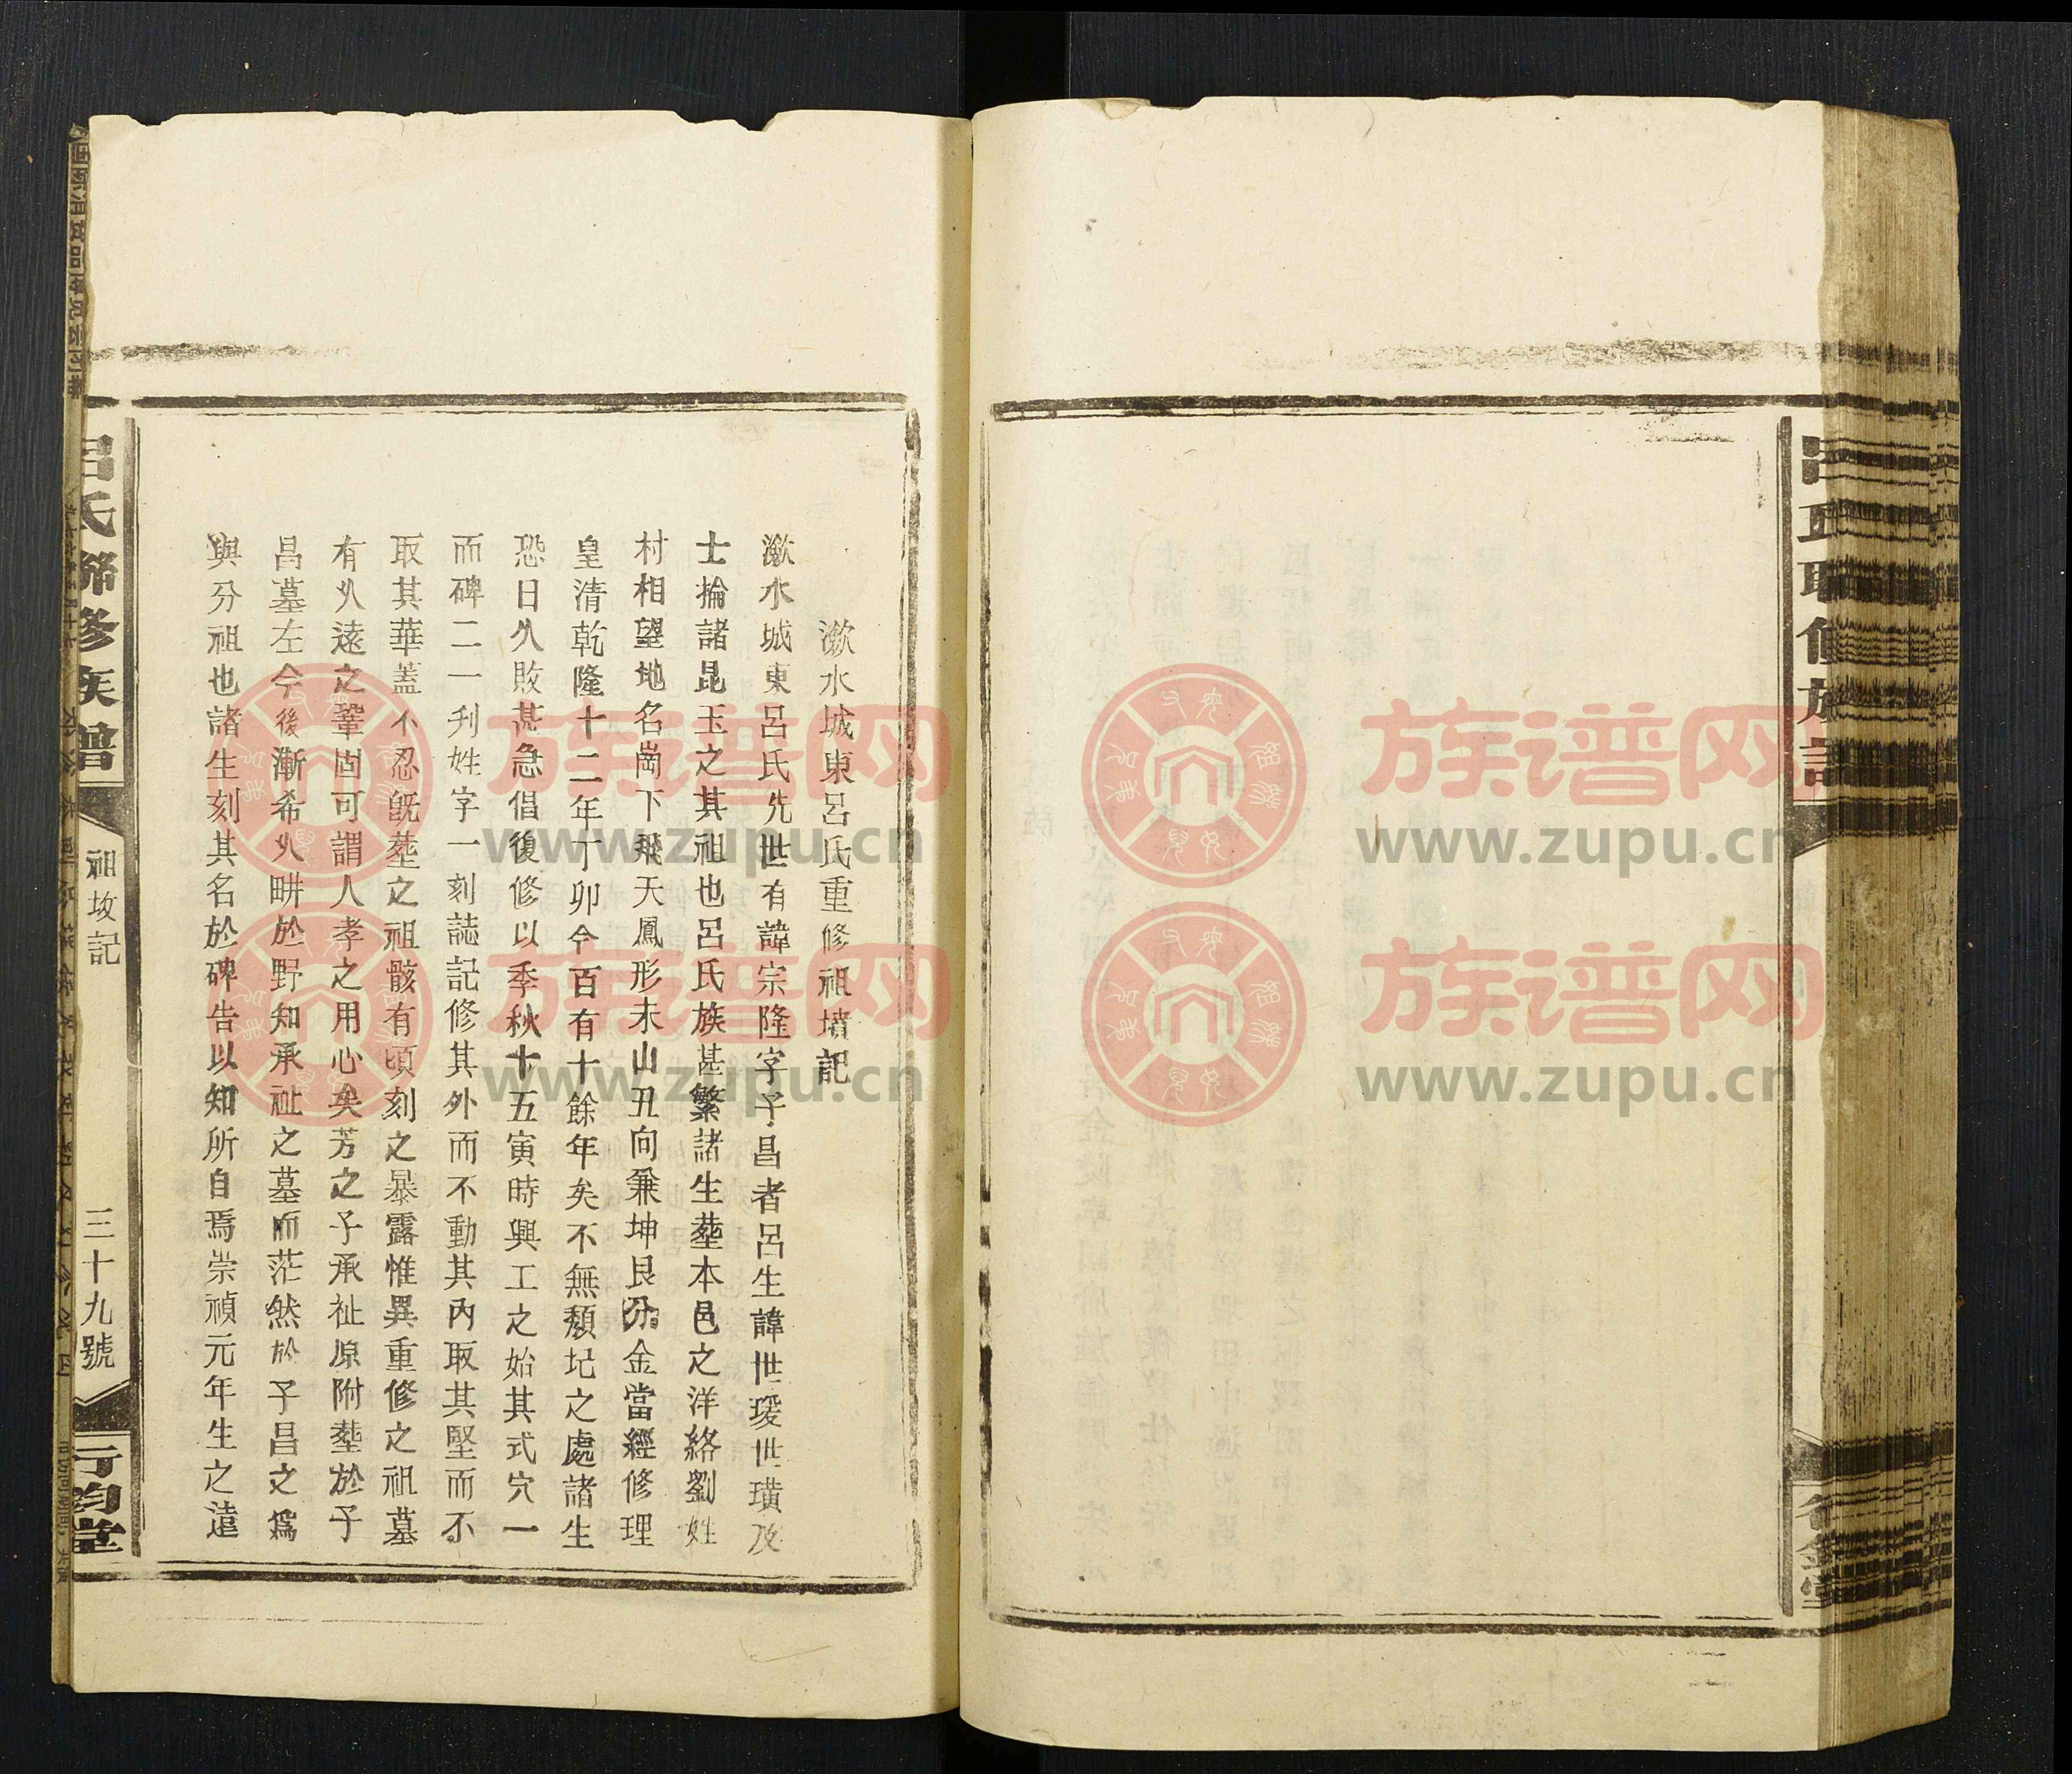 漵水城東呂氏重修祖墳記
漵水城東呂氏先世有諱宗隆字子昌者呂生諱世瑗世璜及
士掄諸昆玉之其祖也呂氏族甚繁諸生塟本邑之洋絡劉姓
村相望地名崗下飛天鳳形未山丑向兼坤艮分金當經修理
皇清乾隆十二年丁卯今百有十餘年矣不無頹圮之處諸生
恐日久敗甚急倡復修以季秋十五寅時興工之始其式穴一
而碑二一刋姓字一刻誌記修其外而不動其內取其堅而不
取其華蓋不忍旣塟之祖骸有頃刻之暴露惟異重修之祖墓
有久遠之鞏固可謂人孝之用心矣芳之子承祉原附塟於子
昌墓左今後漸希久畊於野知承祉之墓而茫然於子昌之爲
與分祖也諸生刻其名於碑告以知所自焉崇禎元年生之遠
呂氏聯修族譜
祖坟記
三十九號
行鈞堂
族谱网
www.zupu.cn
族谱网
www.zupu.cn
族谱网
www.zupu.cn
族谱网
www.zupu.cn